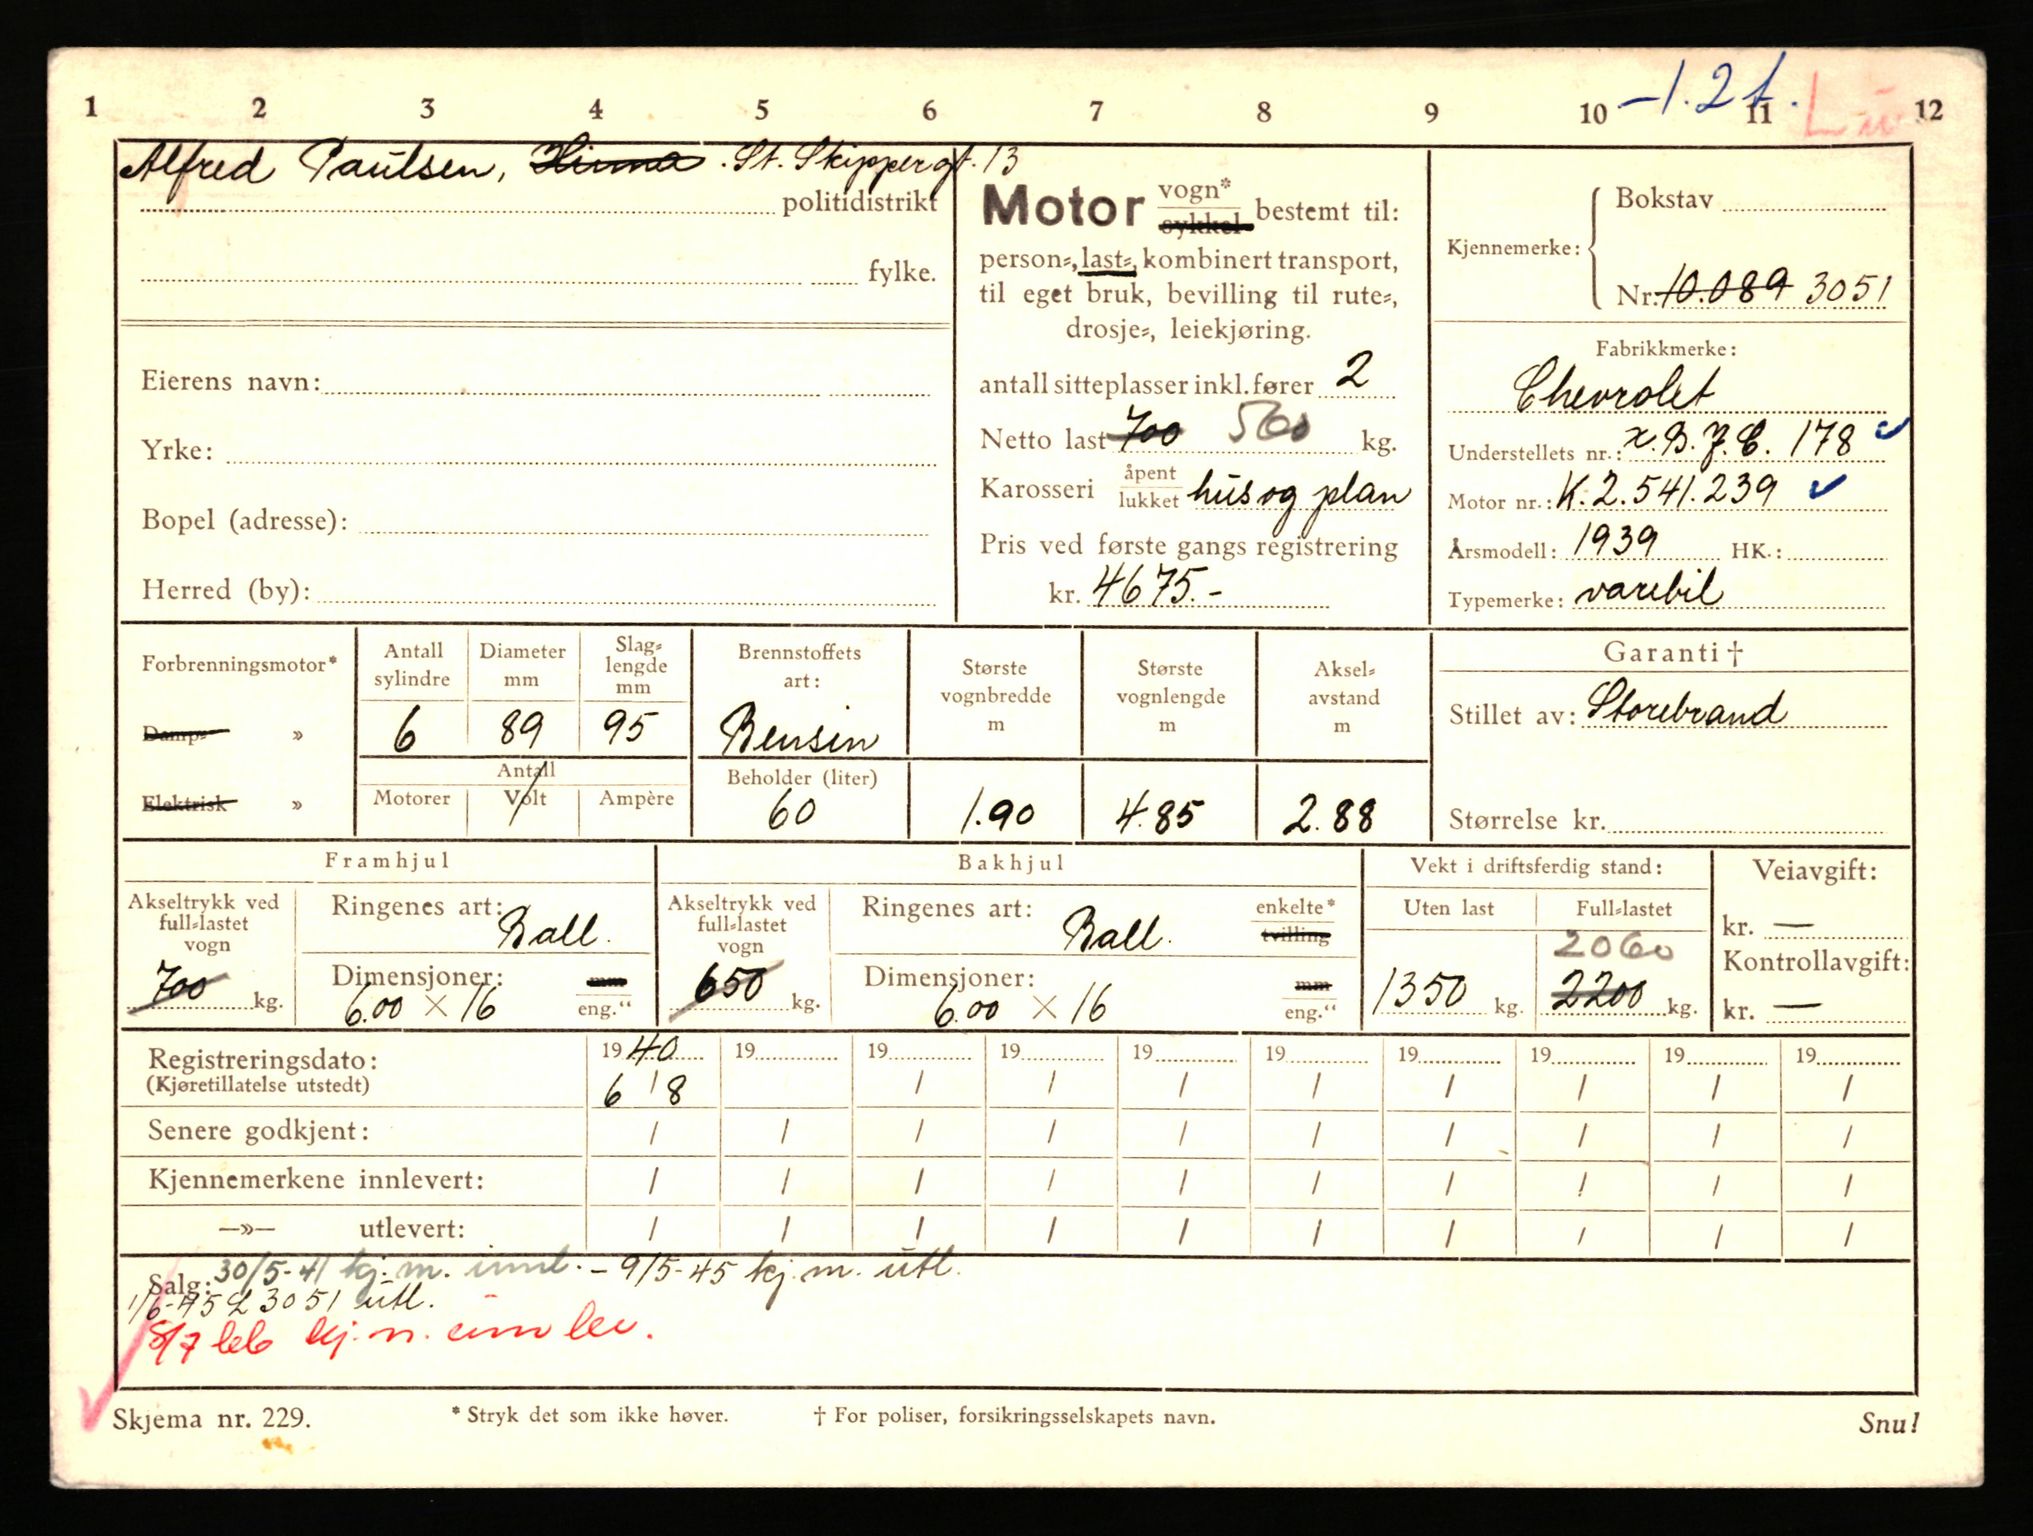 1 2 3 4 5 6 7 8 9 10 -1.2t. 11 12
Alfred Paulsen, Hinna. St. Skippergt. 13
politidistrikt
fylke.
Eierens navn:
Yrke:
Bopel (adresse):
Herred (by):
Motor vogn* sykkel bestemt til:
person-, last-, kombinert transport,
til eget bruk, bevilling til rute-,
drosje-, leiekjøring.
antall sitteplasser inkl. fører 2
Netto last 700 560 kg.
Karosseri åpent lukket hus og plan
Pris ved første gangs registrering
kr. 4675.-
Bokstav
Kjennemerke:
Nr. 10.089 3051
Fabrikkmerke:
Chevrolet
Understellets nr.: x.B.J.C. 178
Motor nr.: K.2.541.239
Årsmodell: 1939 HK.:
Typemerke: varebil
Forbrenningsmotor*
Damp- »
Elektrisk »
Antall sylindre
Diameter mm
Slag-lengde mm
6 89 95
Antall
Motorer Volt Ampère
Brennstoffets art:
Bensin
Beholder (liter)
60
Største vognbredde m
1.90
Største vognlengde m
4.85
Aksel-avstand m
2.88
Garanti †
Stillet av: Storebrand
Størrelse kr.
Framhjul
Akseltrykk ved full-lastet vogn
700 kg.
Ringenes art: Ball.
Dimensjoner: mm
6.00 × 16 eng."
Bakhjul
Akseltrykk ved full-lastet vogn
650 kg.
Ringenes art: Ball. enkelte* tvilling
Dimensjoner: mm
6.00 × 16 eng."
Vekt i driftsferdig stand:
Uten last Full-lastet
2060
1350 kg. 2200 kg.
Veiavgift:
kr. —
Kontrollavgift:
kr. —
Registreringsdato: 1940 19 19 19 19 19 19 19 19 19
(Kjøretillatelse utstedt) 6 / 8 / / / / / / / /
Senere godkjent: / / / / / / / / / /
Kjennemerkene innlevert: / / / / / / / / / /
—»— utlevert: / / / / / / / / / /
Salg: 30/5-41 kj.m. innl. - 9/5-45 kj.m. utl.
1/6-45 L 3051 utl.
8/7 66 kj.m. innlev.
Skjema nr. 229.
* Stryk det som ikke høver.
† For poliser, forsikringsselskapets navn.
Snu!